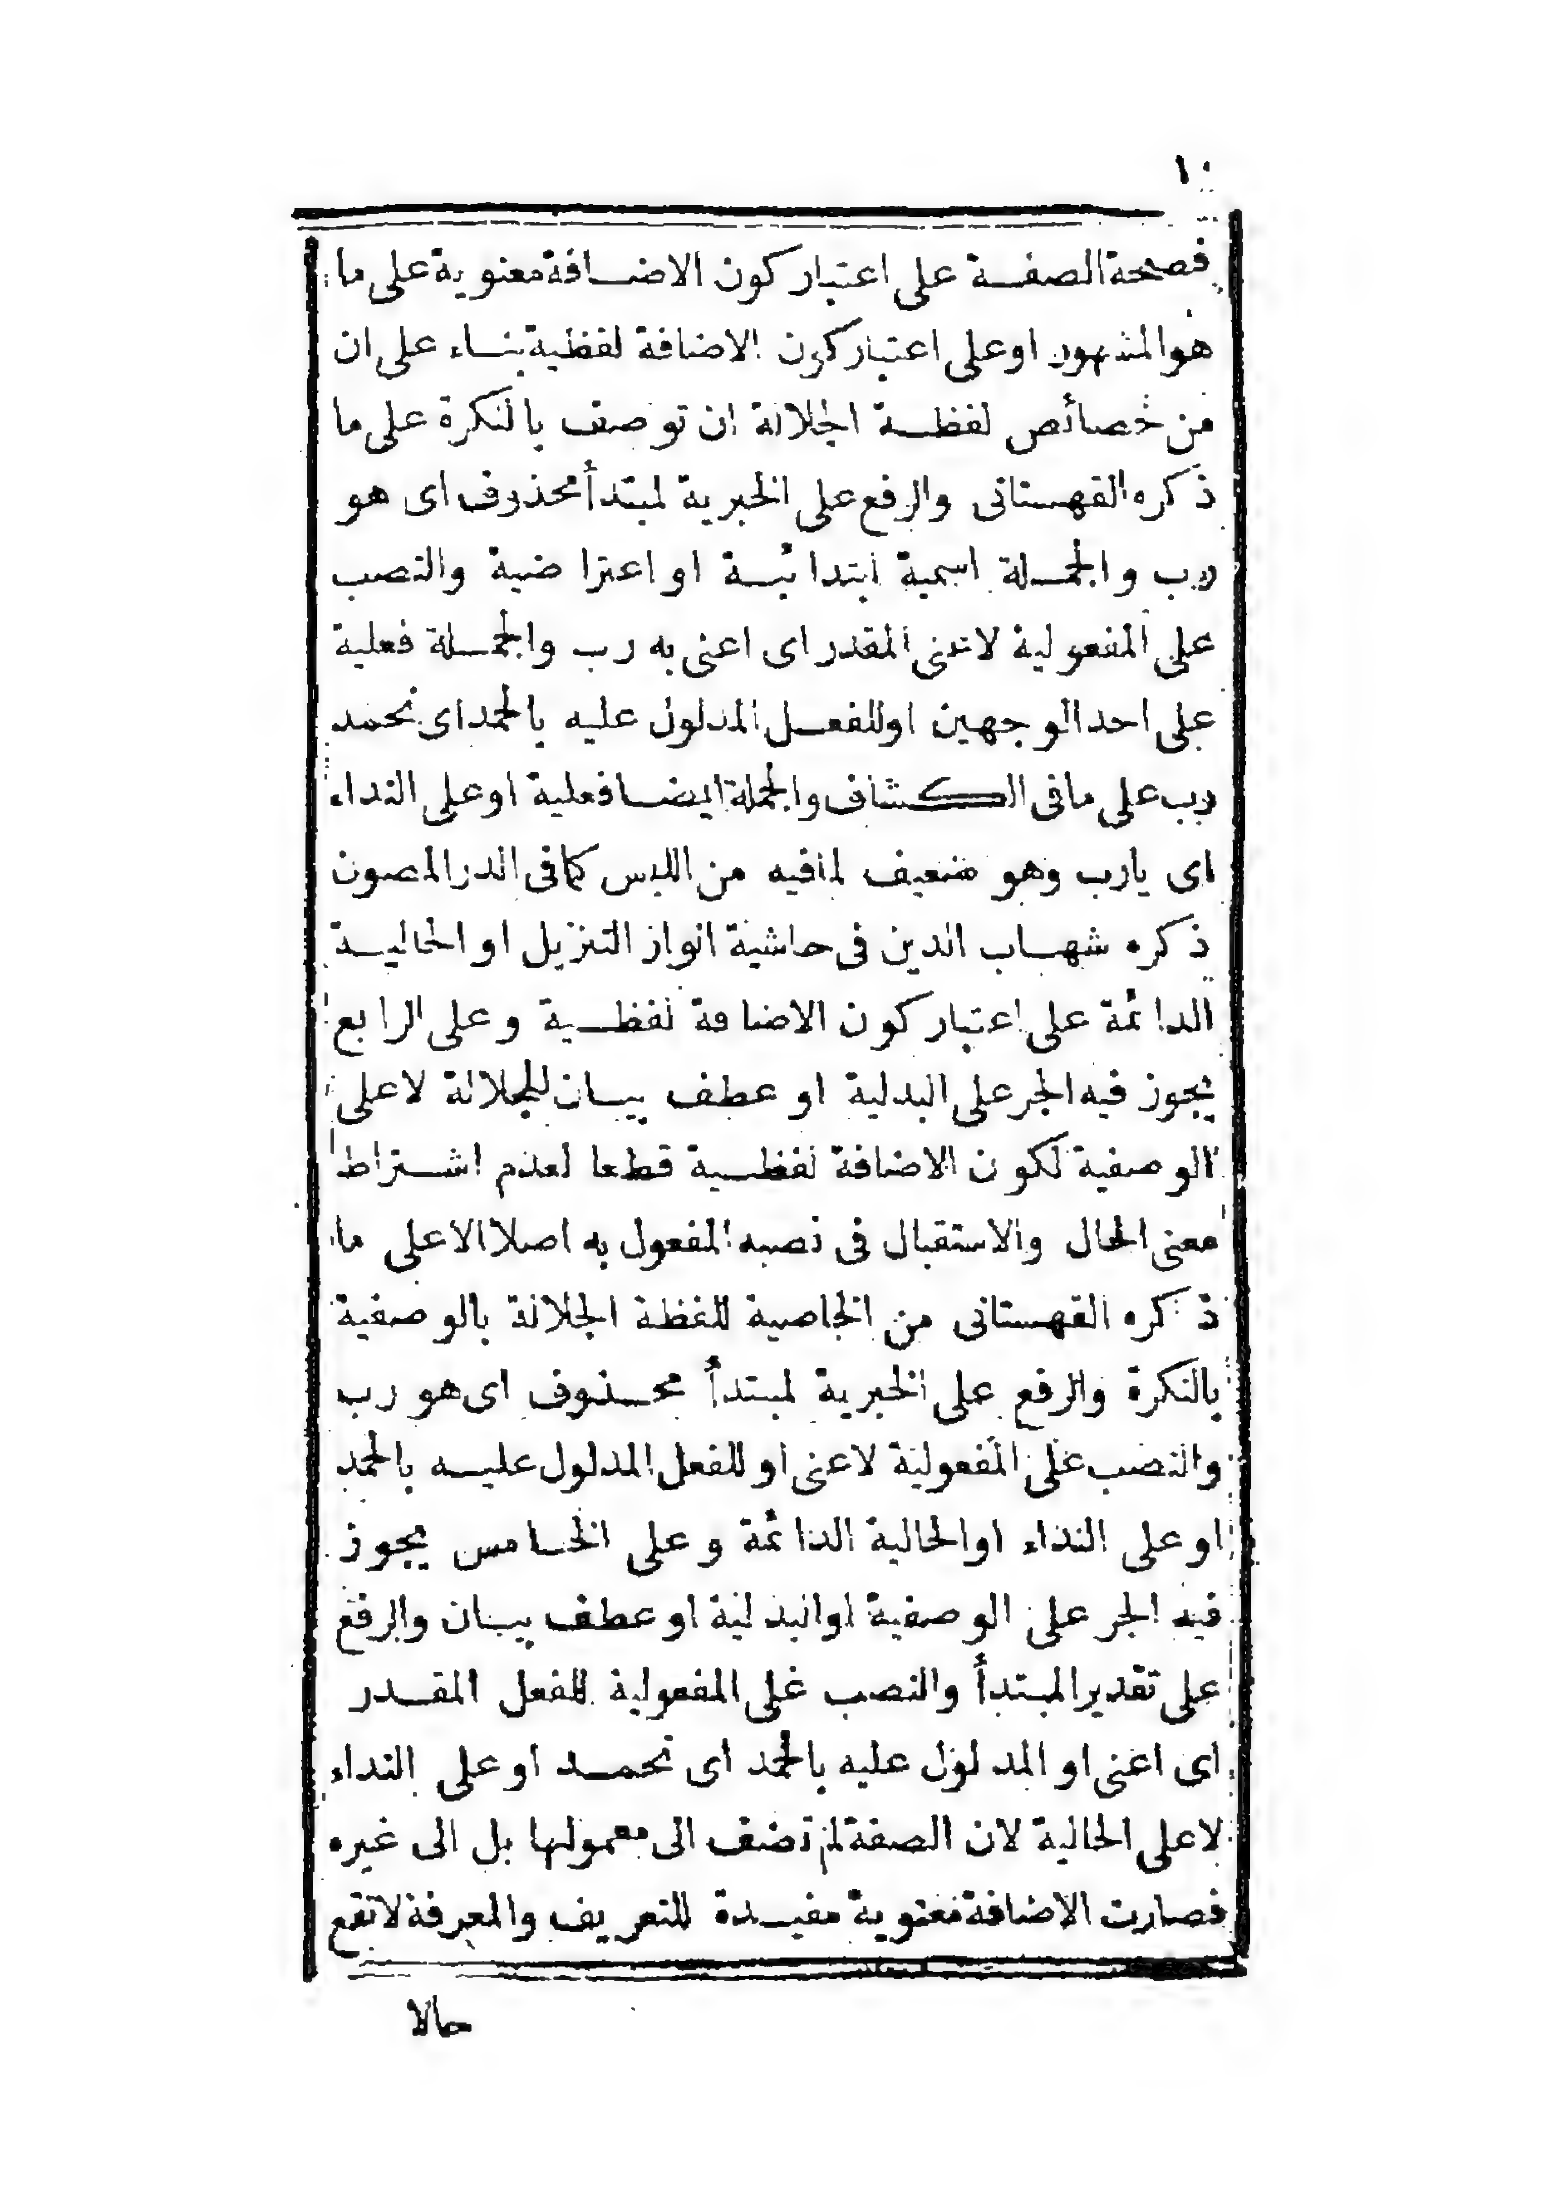 ١٠
فصحة الصفة على اعتبار كون الاضافة معنوية على ما
هو المشهور او على اعتبار كون الاضافة لفظية بناء على ان
من خصائص لفظة الجلالة ان توصف بالنكرة على ما
ذكره القهستانى والرفع على الخبرية لمبتدأ محذوف اى هو
رب والجملة اسمية ابتدائية او اعتراضية والنصب
على المفعولية لاعنى المقدر اى اعنى به رب والجملة فعلية
على احد الوجهين او للفعل المدلول عليه بالحمد اى نحمد
رب على ما فى الكشاف والجملة ايضا فعلية او على النداء
اى يا رب وهو ضعيف لما فيه من اللبس كما فى الدر المصون
ذكره شهاب الدين فى حاشية انوار التنزيل او الحالية
الدائمة على اعتبار كون الاضافة لفظية وعلى الرابع
يجوز فيه الجر على البدلية او عطف بيان للجلالة لا على
الوصفية لكون الاضافة لفظية قطعا لعدم اشتراط
معنى الحال والاستقبال فى نصبه المفعول به اصلا الا على ما
ذكره القهستانى من الخاصية للفظة الجلالة بالوصفية
بالنكرة والرفع على الخبرية لمبتدأ محذوف اى هو رب
والنصب على المفعولية لاعنى او للفعل المدلول عليه بالحمد
او على النداء او الحالية الدائمة وعلى الخامس يجوز
فيه الجر على الوصفية او البدلية او عطف بيان والرفع
على تقدير المبتدأ والنصب على المفعولية للفعل المقدر
اى اعنى او المدلول عليه بالحمد اى نحمد او على النداء
لا على الحالية لان الصفة لم تضف الى معمولها بل الى غيره
فصارت الاضافة معنوية مفيدة للتعريف والمعرفة لا تقع
حالا